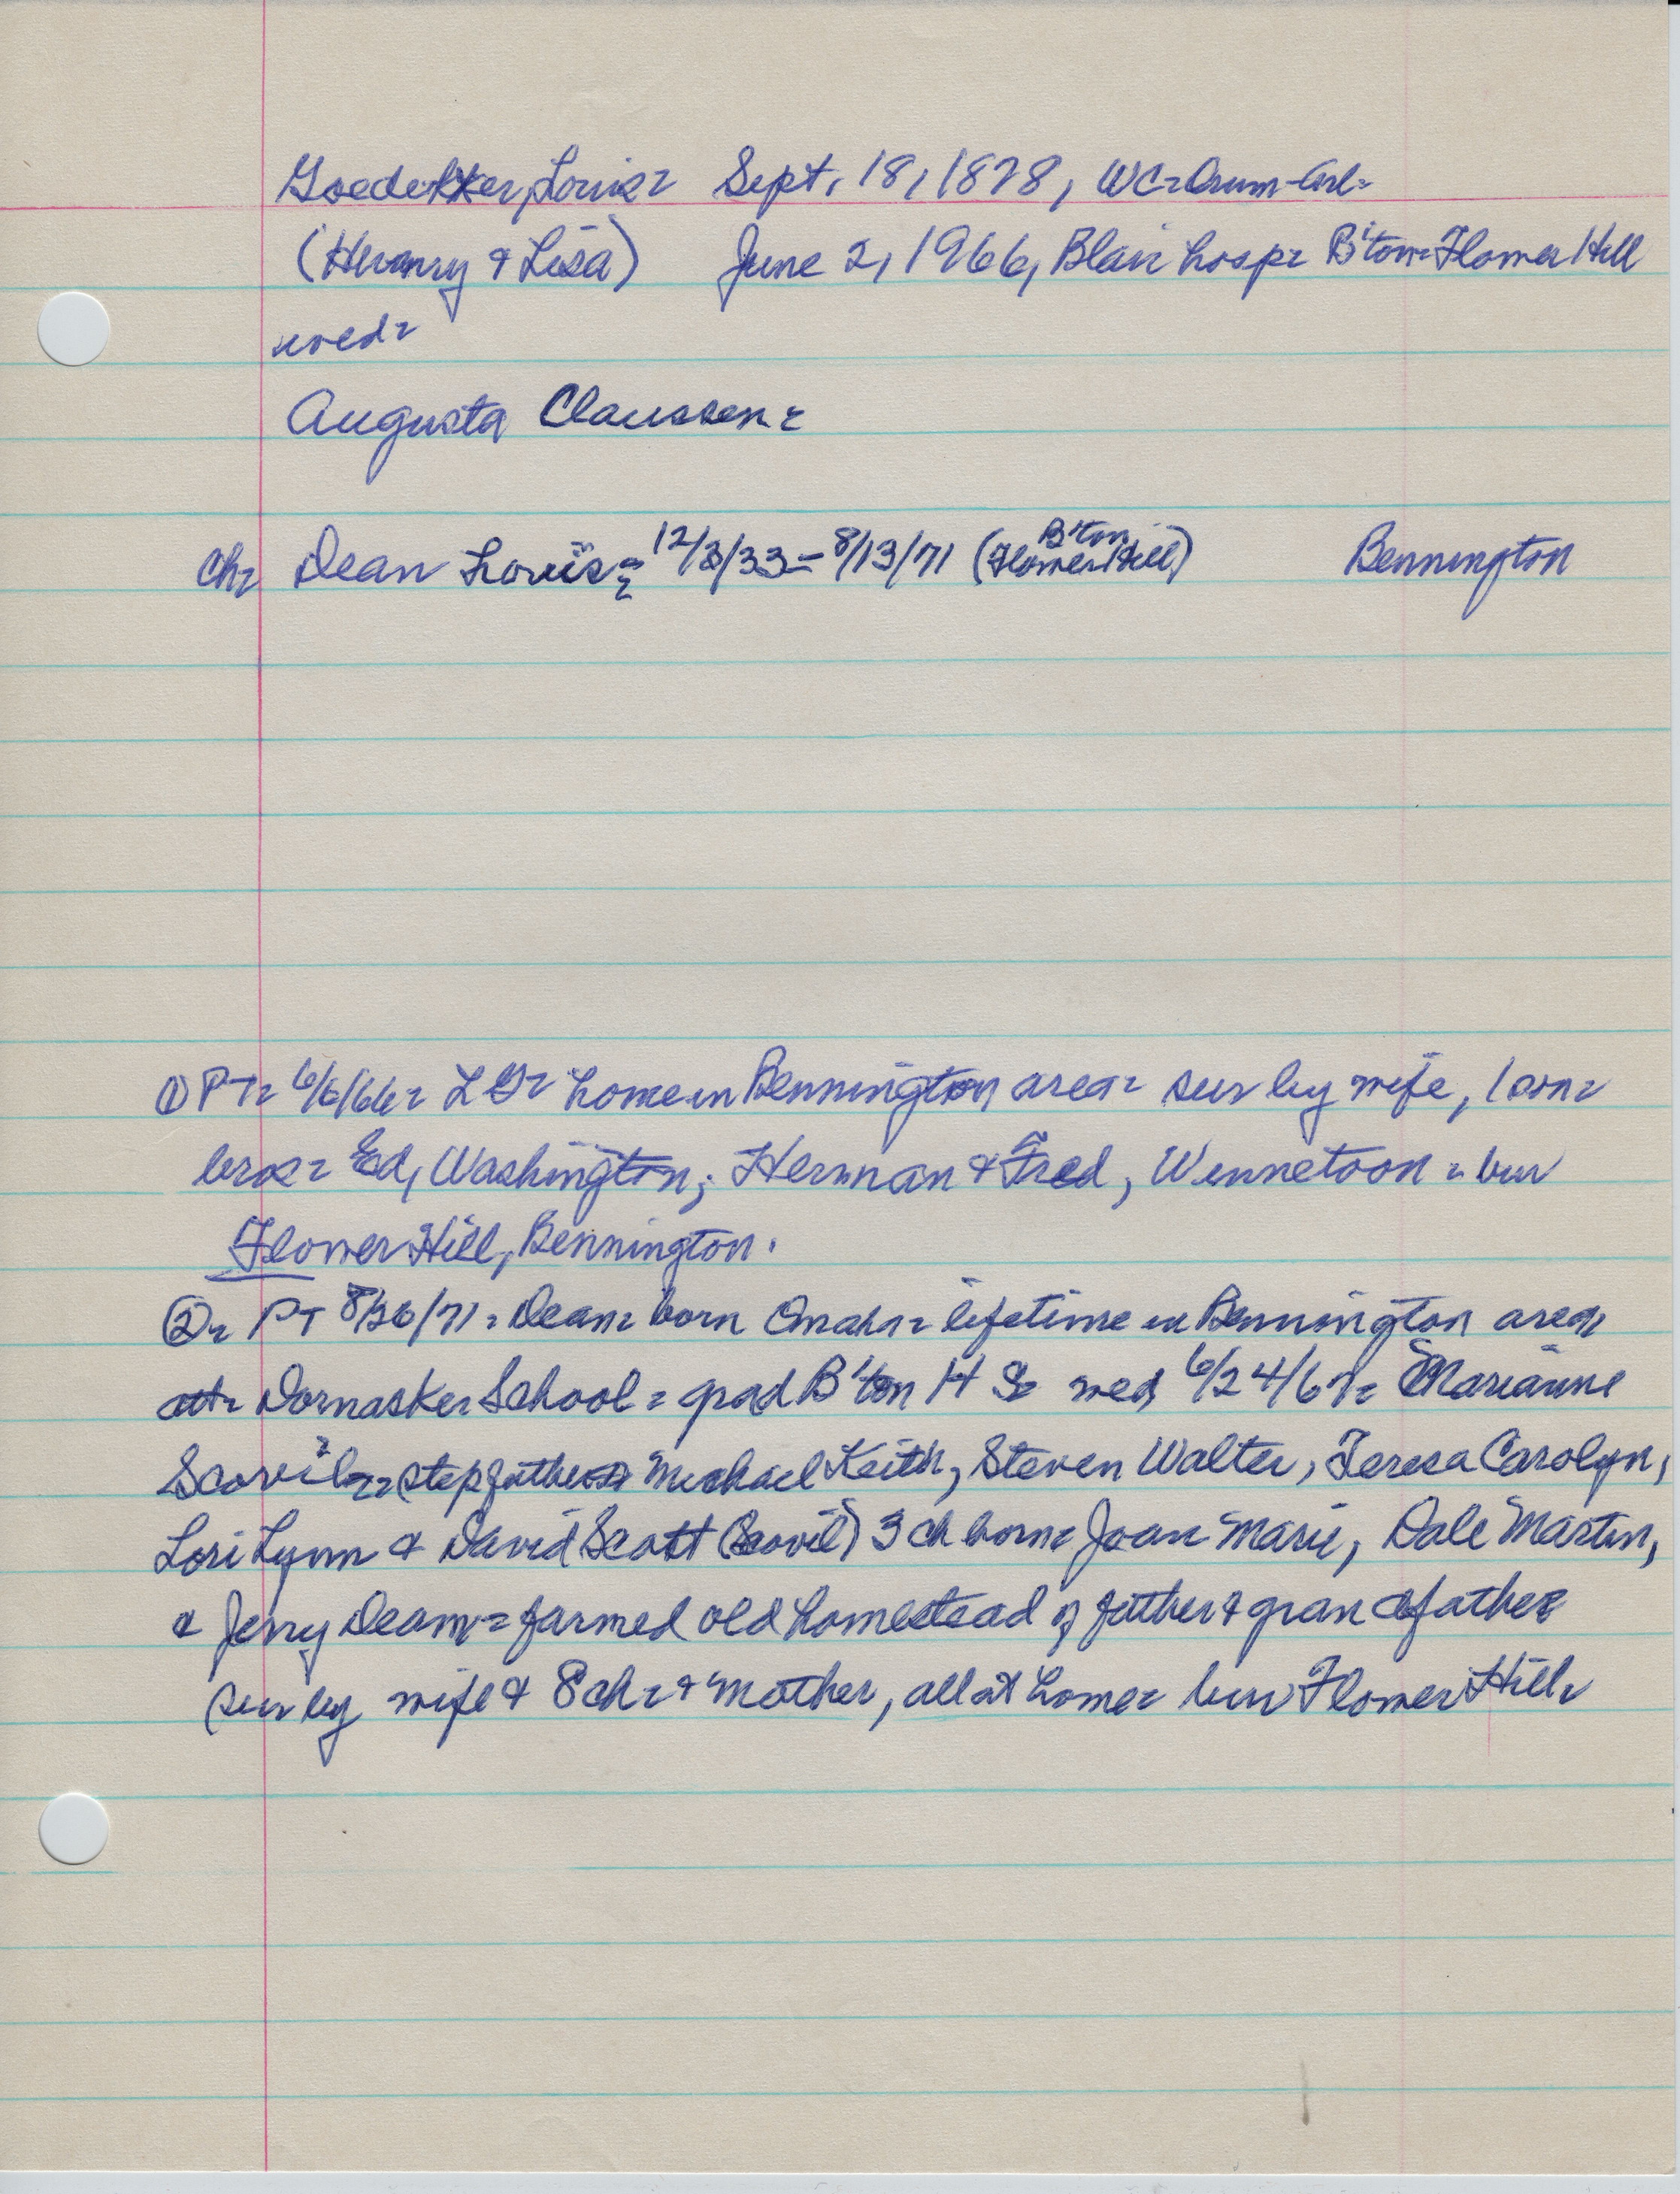 Goedekker, Louis- Sept. 18, 1878, WC- Orum-Arl-
(Henry & Lisa) June 2, 1966, Blair hosp- B'ton- Flower Hill
wed-
Augusta Claussen-
B'ton
ch- Dean Louis- 12/3/33 - 8/13/71 (Flower Hill) Bennington
① PT- 6/6/66- LG- home in Bennington area- sur by wife, 1 son-
bros- Ed, Washington; Herman & Fred, Winnetoon- bur
Flower Hill, Bennington.
②- PT 8/26/71- Dean- born Omaha- lifetime in Bennington area
att- Dornasker School- grad B'ton H S- wed 6/24/67- Marianne
Scovil-- stepfather Michael Keith, Steven Walter, Teresa Carolyn,
Lori Lynn & David Scott (Scovil) 3 ch born- Joan Marie, Dale Martin,
& Jerry Dean- farmed old homestead of father & grandfather
sur by wife & 8 ch- & mother, all at home- bur Flower Hill-